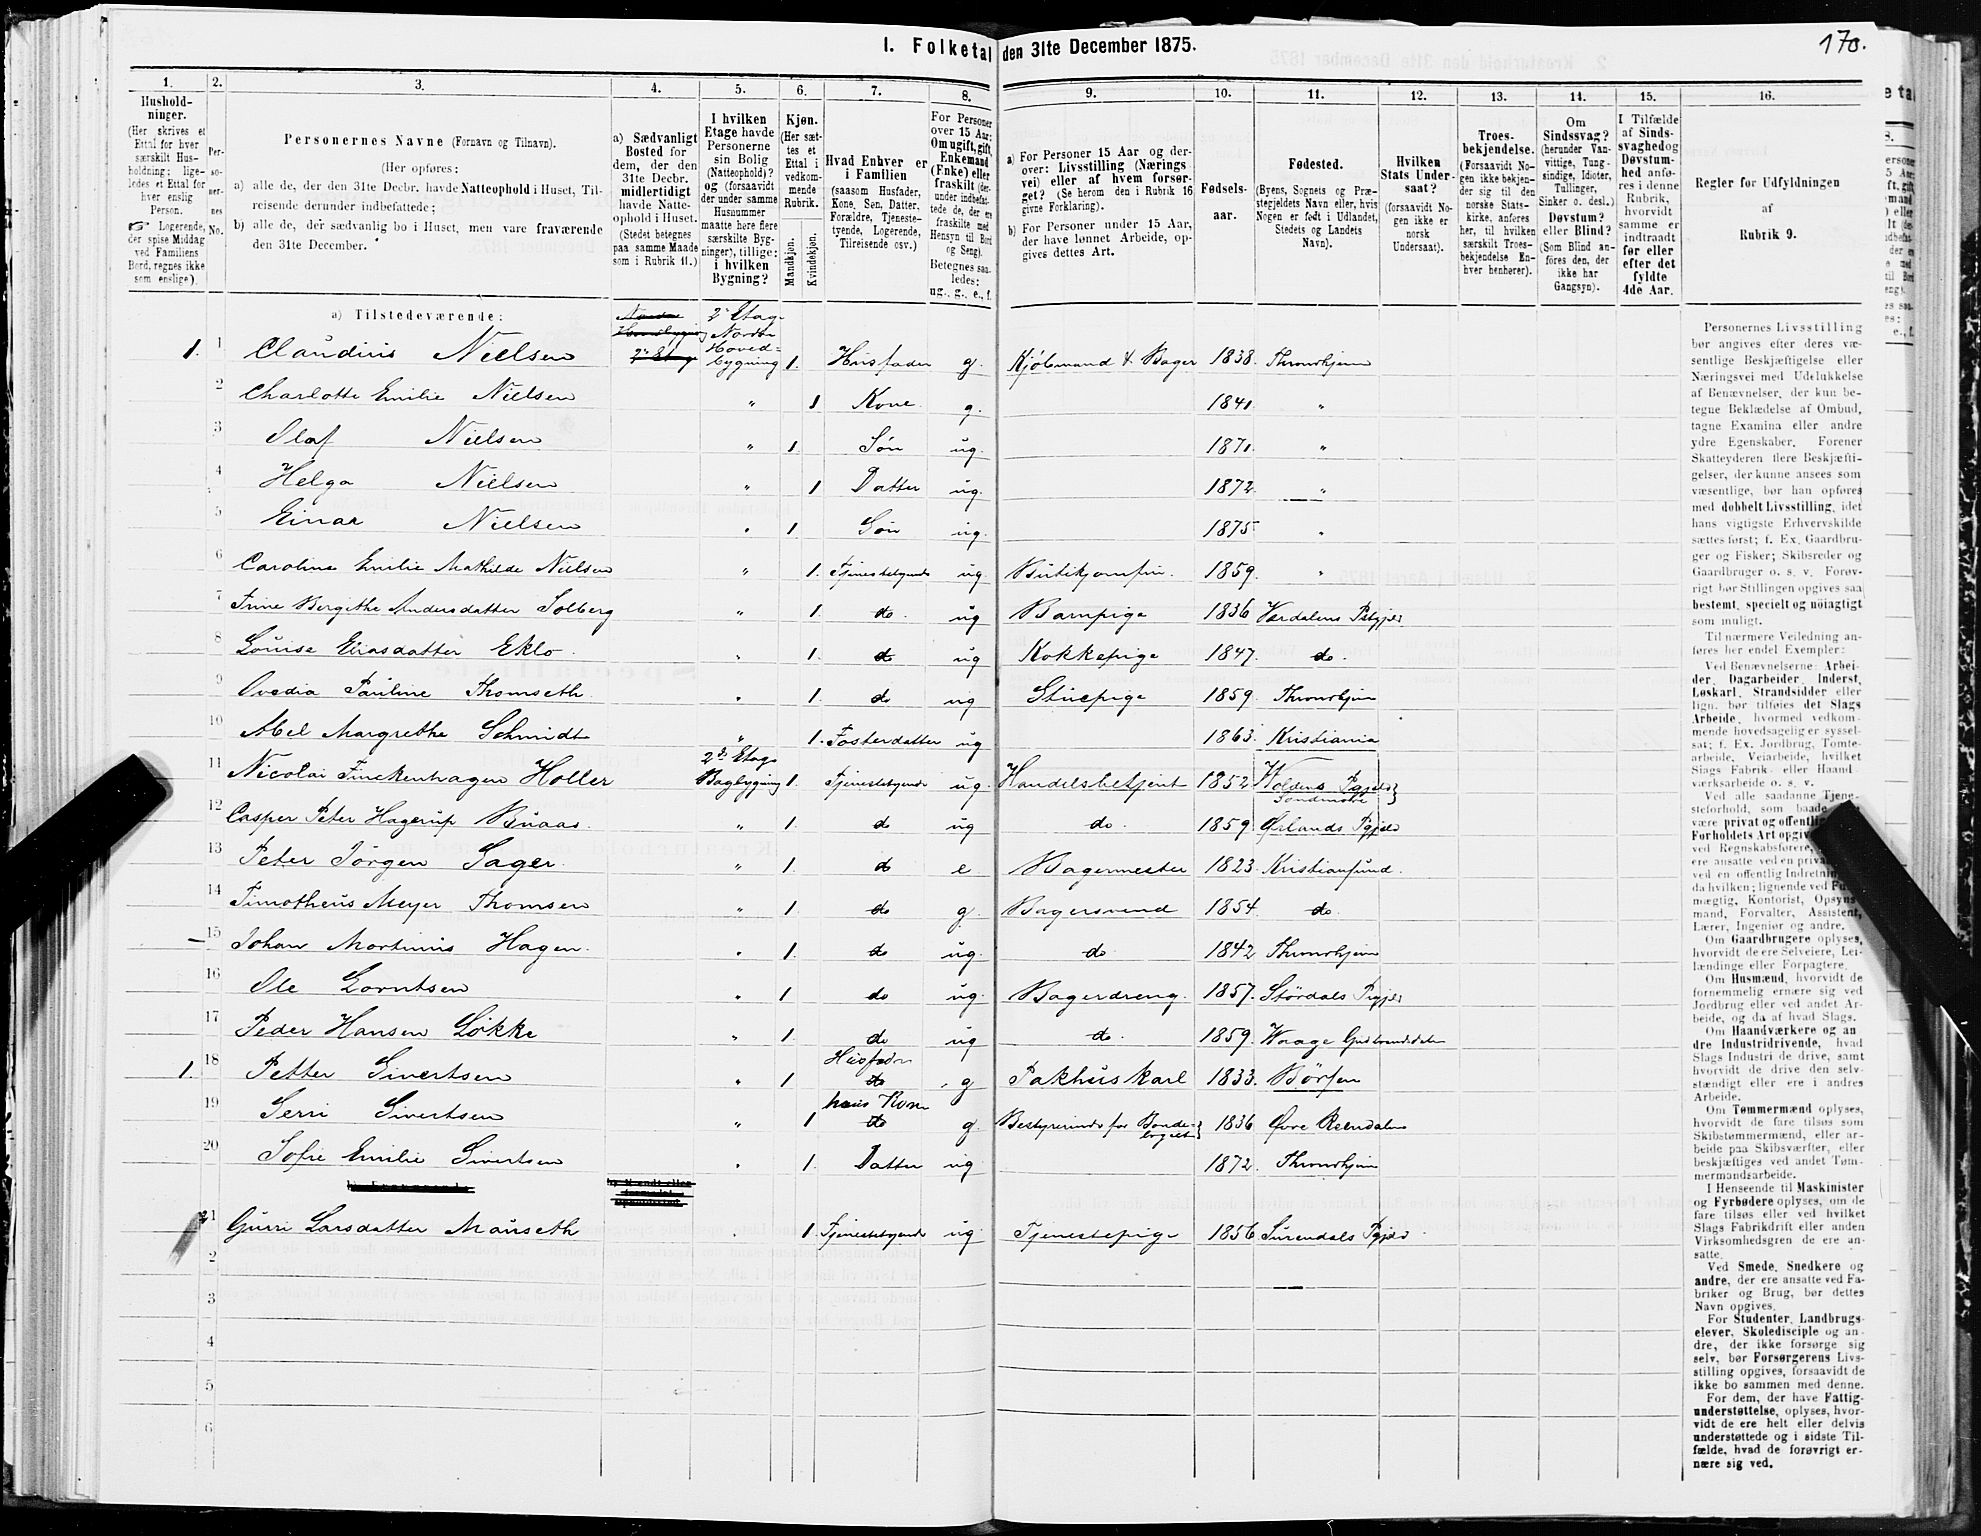 I. Folketal den 31te December 1875.
170.
1. 2. 3. 4. 5. 6. 7. 8. 9. 10. 11. 12. 13. 14. 15. 16.
Hushold-
ninger.
(Her skrives et
Ettal for hver
særskilt Hus-
holdning; lige-
ledes et Ettal for
hver enslig
Person.
Logerende,
der spise Middag
ved Familiens
Bord, regnes ikke
som enslige).
Per-
so-
ner-
nes
No.
Personernes Navne (Fornavn og Tilnavn).
(Her opføres:
a) alle de, der den 31te Decbr. havde Natteophold i Huset, Til-
reisende derunder indbefattede;
b) alle de, der sædvanlig bo i Huset, men vare fraværende
den 31te December.
a) Sædvanligt
Bosted for
dem, der den
31te Decbr.
midlertidigt
havde Natte-
ophold i Huset.
(Stedet betegnes
paa samme Maade
som i Rubrik 11.)
I hvilken
Etage havde
Personerne
sin Bolig
(Natteophold)?
og (forsaavidt
der under samme
Husnummer
maatte høre flere
særskilte Byg-
ninger), tillige:
i hvilken
Bygning?
Kjøn.
(Her sæt-
tes et
Ettal i
vedkom-
mende
Rubrik.
Mandkjøn.
Kvindekjøn.
Hvad Enhver er
i Familien
(saasom Husfader,
Kone, Søn, Datter,
Forældre, Tjeneste-
tyende, Logerende,
Tilreisende osv.)
For Personer
over 15 Aar:
Om ugift, gift,
Enkemand
(Enke) eller
fraskilt (der-
under indbefat-
tede de, der ere
fraskilte med
Hensyn til Bord
og Seng).
Betegnes saa-
ledes:
ug., g., e., f.
a) For Personer 15 Aar og der-
over: Livsstilling (Nærings
vei) eller af hvem forsør-
get? (Se herom den i Rubrik 16
givne Forklaring).
b) For Personer under 15 Aar,
der have lønnet Arbeide, op-
gives dettes Art.
Fødsels-
aar.
Fødested.
(Byens, Sognets og Præ-
stegjeldets Navn eller, hvis
Nogen er født i Udlandet,
Stedets og Landets
Navn).
Hvilken
Stats Under-
saat?
(forsaavidt No-
gen ikke er
norsk
Undersaat).
Troes-
bekjendelse.
(Forsaavidt No-
gen ikke bekjen-
der sig til den
norske Stats-
kirke, anføres
her, til hvilken
særskilt Troes-
bekjendelse En-
hver henhører).
Om
Sindssvag?
(herunder Van-
vittige, Tung-
sindige, Idioter,
Tullinger,
Sinker o. desl.)
Døvstum?
eller Blind?
(Som Blind an-
føres den, der
ikke har
Gangsyn).
I Tilfælde
af Sinds-
svaghed og
Døvstum-
hed anfø-
res i denne
Rubrik,
hvorvidt
samme er
indtraadt
før eller
efter det
fyldte
4de Aar.
Regler for Udfyldningen
af
Rubrik 9.
a) Tilstedeværende:
1. 1 Claudius Nielsen 2. Etage Nordre Hoved-bygning 1. Husfader g. Kjøbmand & Bager 1838. Throndhjem
2 Charlotte Emilie Nielsen " 1 Kone g. 1841. "
3 Olaf Nielsen " 1. Søn ug. 1871. "
4 Helga Nielsen " 1 Datter ug. 1872. "
5 Einar Nielsen " 1. Søn ug. 1875 "
6 Caroline Emilie Mathilde Nielsen " 1. Tjenestetyende ug Butikjomfru. 1859. "
7 Trine Bergithe Andersdatter Solberg " 1. do. ug Barnpige 1836 Værdalens Pstgjld
8 Louise Eliasdatter Eklo " 1. do ug Kokkepige 1847. do.
9 Ovedia Pauline Thomseth " 1. do ug Stuepige 1859. Throndhjem
10 Abel Margrethe Schmidt " 1. Fosterdatter ug 1863. Kristiania
11 Nicolai Finckenhagen Holler 2de Etage Bagbygning 1. Tjenestetyende ug. Handelsbetjent 1852 Voldens Pgjeld Søndmøre
12 Casper Peter Hagerup Buaas. " 1. do ug do. 1859. Ørlands Pgjeld
13 Peter Jørgen Sager. " 1. do e Bagermester 1823. Kristiansund.
14 Timotheus Meyer Thomsen " 1 do g. Bagersvend 1854. do
15 Johan Martinus Hagen. " 1. do ug. do 1842 Throndhjem
16 Ole Lorntsen " 1 do ug. Bagerdreng. 1857. Størdals Pgjeld
17 Peder Hansen Løkke " 1. do ug do. 1859. Waage Gudbrandsdalen
1. 18 Petter Sivertsen " 1 Husfader do g Pakhuskarl 1833. Børsen
19 Serri Sivertsen " 1 hans Kone do g. Bestyrerinde for Bonde- 1836
20 Sofie Emilie Sivertsen " 1. Datter ug 1872. Throndhjem
21 Gurri Larsdatter 1. Tjenestetyende ug Tjenestepige 1856 Surendals Pgjeld.
2
3
4
5
6
Personernes Livsstilling
bør angives efter deres væ-
sentlige Beskjæftigelse eller
Næringsvei med Udelukkelse
af Benævnelser, der kun be-
tegne Beklædelse af Ombud,
tagne Examina eller andre
ydre Egenskaber. Forener
Skatteyderen flere Beskjæfti-
gelser, der kunne ansees som
væsentlige, bør han opføres
med dobbelt Livsstilling, idet
hans vigtigste Erhvervskilde
sættes først; f. Ex. Gaardbru-
ger og Fisker; Skibsreder og
Gaardbruger o. s. v. Forøv-
rigt bør Stillingen opgives saa
bestemt, specielt og nöiagtigt
som muligt.
Til nærmere Veiledning an-
føres her endel Exempler:
Ved Benævnelserne: Arbei-
der, Dagarbeider, Inderst,
Løskarl, Strandsidder eller
lign. bør tilføies det Slags
Arbeide, hvormed vedkom-
mende hovedsagelig er syssel-
sat; f. Ex. Jordbrug, Tomte-
arbeide, Veiarbeide, hvilket
Slags Fabrik- eller Haand-
værksarbeide o. s. v.
Ved alle saadanne Tjene-
steforhold, som baade
være privat og offentlig
Forholdets Art opgiv
ved Regnskabsførere,
ere ansatte ved en priva
ved en offentlig Indretnin
da hvilken; lignende ved Fuld-
mægtig, Kontorist, Opsyns-
mand, Forvalter, Assistent,
Lærer, Ingeniør og andre.
Om Gaardbrugere oplyses,
hvorvidt de ere Selveiere, Lei-
lændinge eller Forpagtere.
Om Husmænd, hvorvidt de
fornemmelig ernære sig ved
Jordbrug eller ved andet Ar-
beide, og da af hvad Slags.
Om Haandværkere og an
dre Industridrivende, hvad
Slags Industri de drive, samt
hvorvidt de drive den selv-
stændigt eller ere i andres
Arbeide.
Om Tømmermænd oplyses,
hvorvidt de fare tilsøs som
Skibstømmermænd, eller ar-
beide paa Skibsværfter, eller
beskjæftiges ved andet Tøm-
mermandsarbeide.
I Henseende til Maskinister
og Fyrbødere oplyses, om de
fare tilsøs eller ved hvilket
Slags Fabrikdrift eller anden
Virksomhedsgren de ere an-
satte.
Ved Smede, Snedkere og
andre, der ere ansatte ved Fa-
briker og Brug, bør dettes
Navn opgives.
For Studenter, Landbrugs-
elever, Skoledisciple og an-
dre, der ikke forsørge sig
selv, bør Forsørgerens Livs-
stilling opgives, forsaavidt de
ikke bo sammen med denne.
For dem, der have Fattig-
understøttelse, oplyses, hvor-
vidt de ere helt eller delvis
understøttede og i sidste Til-
fælde, hvad de forøvrigt er-
nære sig ved.